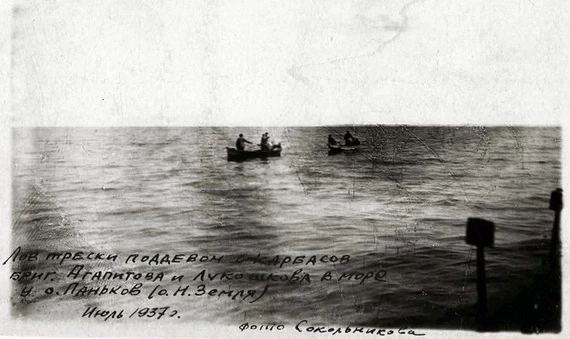 Лов трески поддевом с карбасов
бриг. Агапитова и Лукошкова в море
у о. Паньков (о. Н. Земля)
Июль 1937 г.
фото Сокольникова